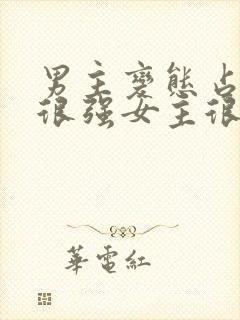 男主變態占
很强女主很
華電紅